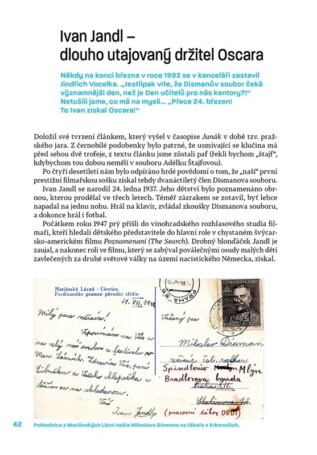 Ivan Jandl –
dlouho utajovaný držitel Oscara
Někdy na konci března v roce 1993 se v kanceláři zastavil
Jindřich Vocelka. „Jestlipak víte, že Dismanův soubor čeká
významnější den, než je Den učitelů pro nás kantory?!“
Netušili jsme, co má na mysli... „Přece 24. březen!
To Ivan získal Oscara!“
Doložil své tvrzení článkem, který vyšel v časopise Junák v době tzv. praž-
ského jara. Z černobílé podobenky bylo patrné, že usmívající se klučina má
před sebou dvě trofeje, z textu článku jsme zůstali paf (řekli bychom „štajf“,
kdybychom tou dobou neměli v souboru Adélku Štajfovou).
Po čtyři desetiletí nám bylo odpíráno hrdé povědomí o tom, že „naší“ první
prestižní filmařskou sošku získal tehdy dvanáctiletý člen Dismanova souboru.
Ivan Jandl se narodil 24. ledna 1937. Jeho dětství bylo poznamenáno obr-
nou, kterou prodělal ve třech letech. Téměř zázrakem se zotavil, byť lehce
napadal na jednu nohu. Hrál na klavír, zvládal zkoušky Dismanova souboru, a
dokonce hrál i fotbal.
Počátkem roku 1947 prý přišli do vinohradského rozhlasového studia fil-
maři, kteří hledali dětského představitele do hlavní role v chystaném švýcar-
sko-americkém filmu Poznamenaní (The Search). Drobný blonďáček Jandl je
zaujal, a nakonec roli ve filmu, který se zabýval poválečnými osudy malých dětí
zavlečených za druhé světové války na území nacistického Německa, získal.
Mariánské Lázně – Úšovice,
Ferdinandův pramen
Milý pane
Vzpomínám na Vás
Ivan Jandl
Miloslav Disman
Spindlerův Mlýn
Bradlerova bouda
(pracovní tábor DRDS)
42
Pohlednice z Mariánských Lázní našla Miloslava Dismana na táboře v Krkonoších.